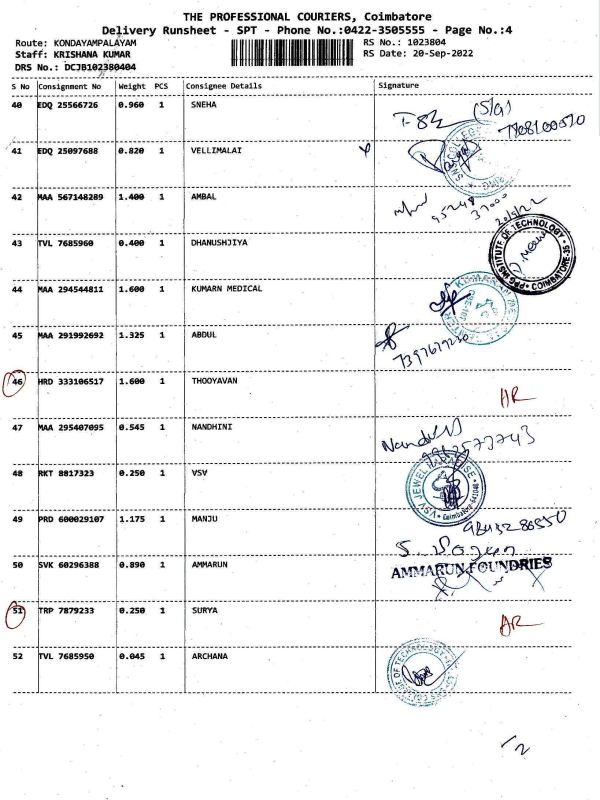 THE PROFESSIONAL COURIERS, Coimbatore
Delivery Runsheet - SPT - Phone No.:0422-3505555 - Page No.:4
Route: KONDAYAMPALAYAM RS No.: 1023804
Staff: KRISHANA KUMAR RS Date: 20-Sep-2022
DRS No.: DCJB102380404
S No Consignment No Weight PCS Consignee Details Signature
40 EDQ 25566726 0.960 1 SNEHA
41 EDQ 25097688 0.820 1 VELLIMALAI
42 MAA 567148289 1.400 1 AMBAL
20/9/22
43 TVL 7685960 0.400 1 DHANUSHJIYA
PPG INSTITUTE OF TECHNOLOGY * COIMBATORE-35 *
44 MAA 294544811 1.600 1 KUMARN MEDICAL
45 MAA 291992692 1.325 1 ABDUL
46 HRD 333106517 1.600 1 THOOYAVAN AR
47 MAA 295407095 0.545 1 NANDHINI
48 RKT 8817323 0.250 1 VSV
49 PRD 600029107 1.175 1 MANJU
50 SVK 60296388 0.890 1 AMMARUN AMMARUN FOUNDRIES
51 TRP 7879233 0.250 1 SURYA AR
52 TVL 7685950 0.045 1 ARCHANA